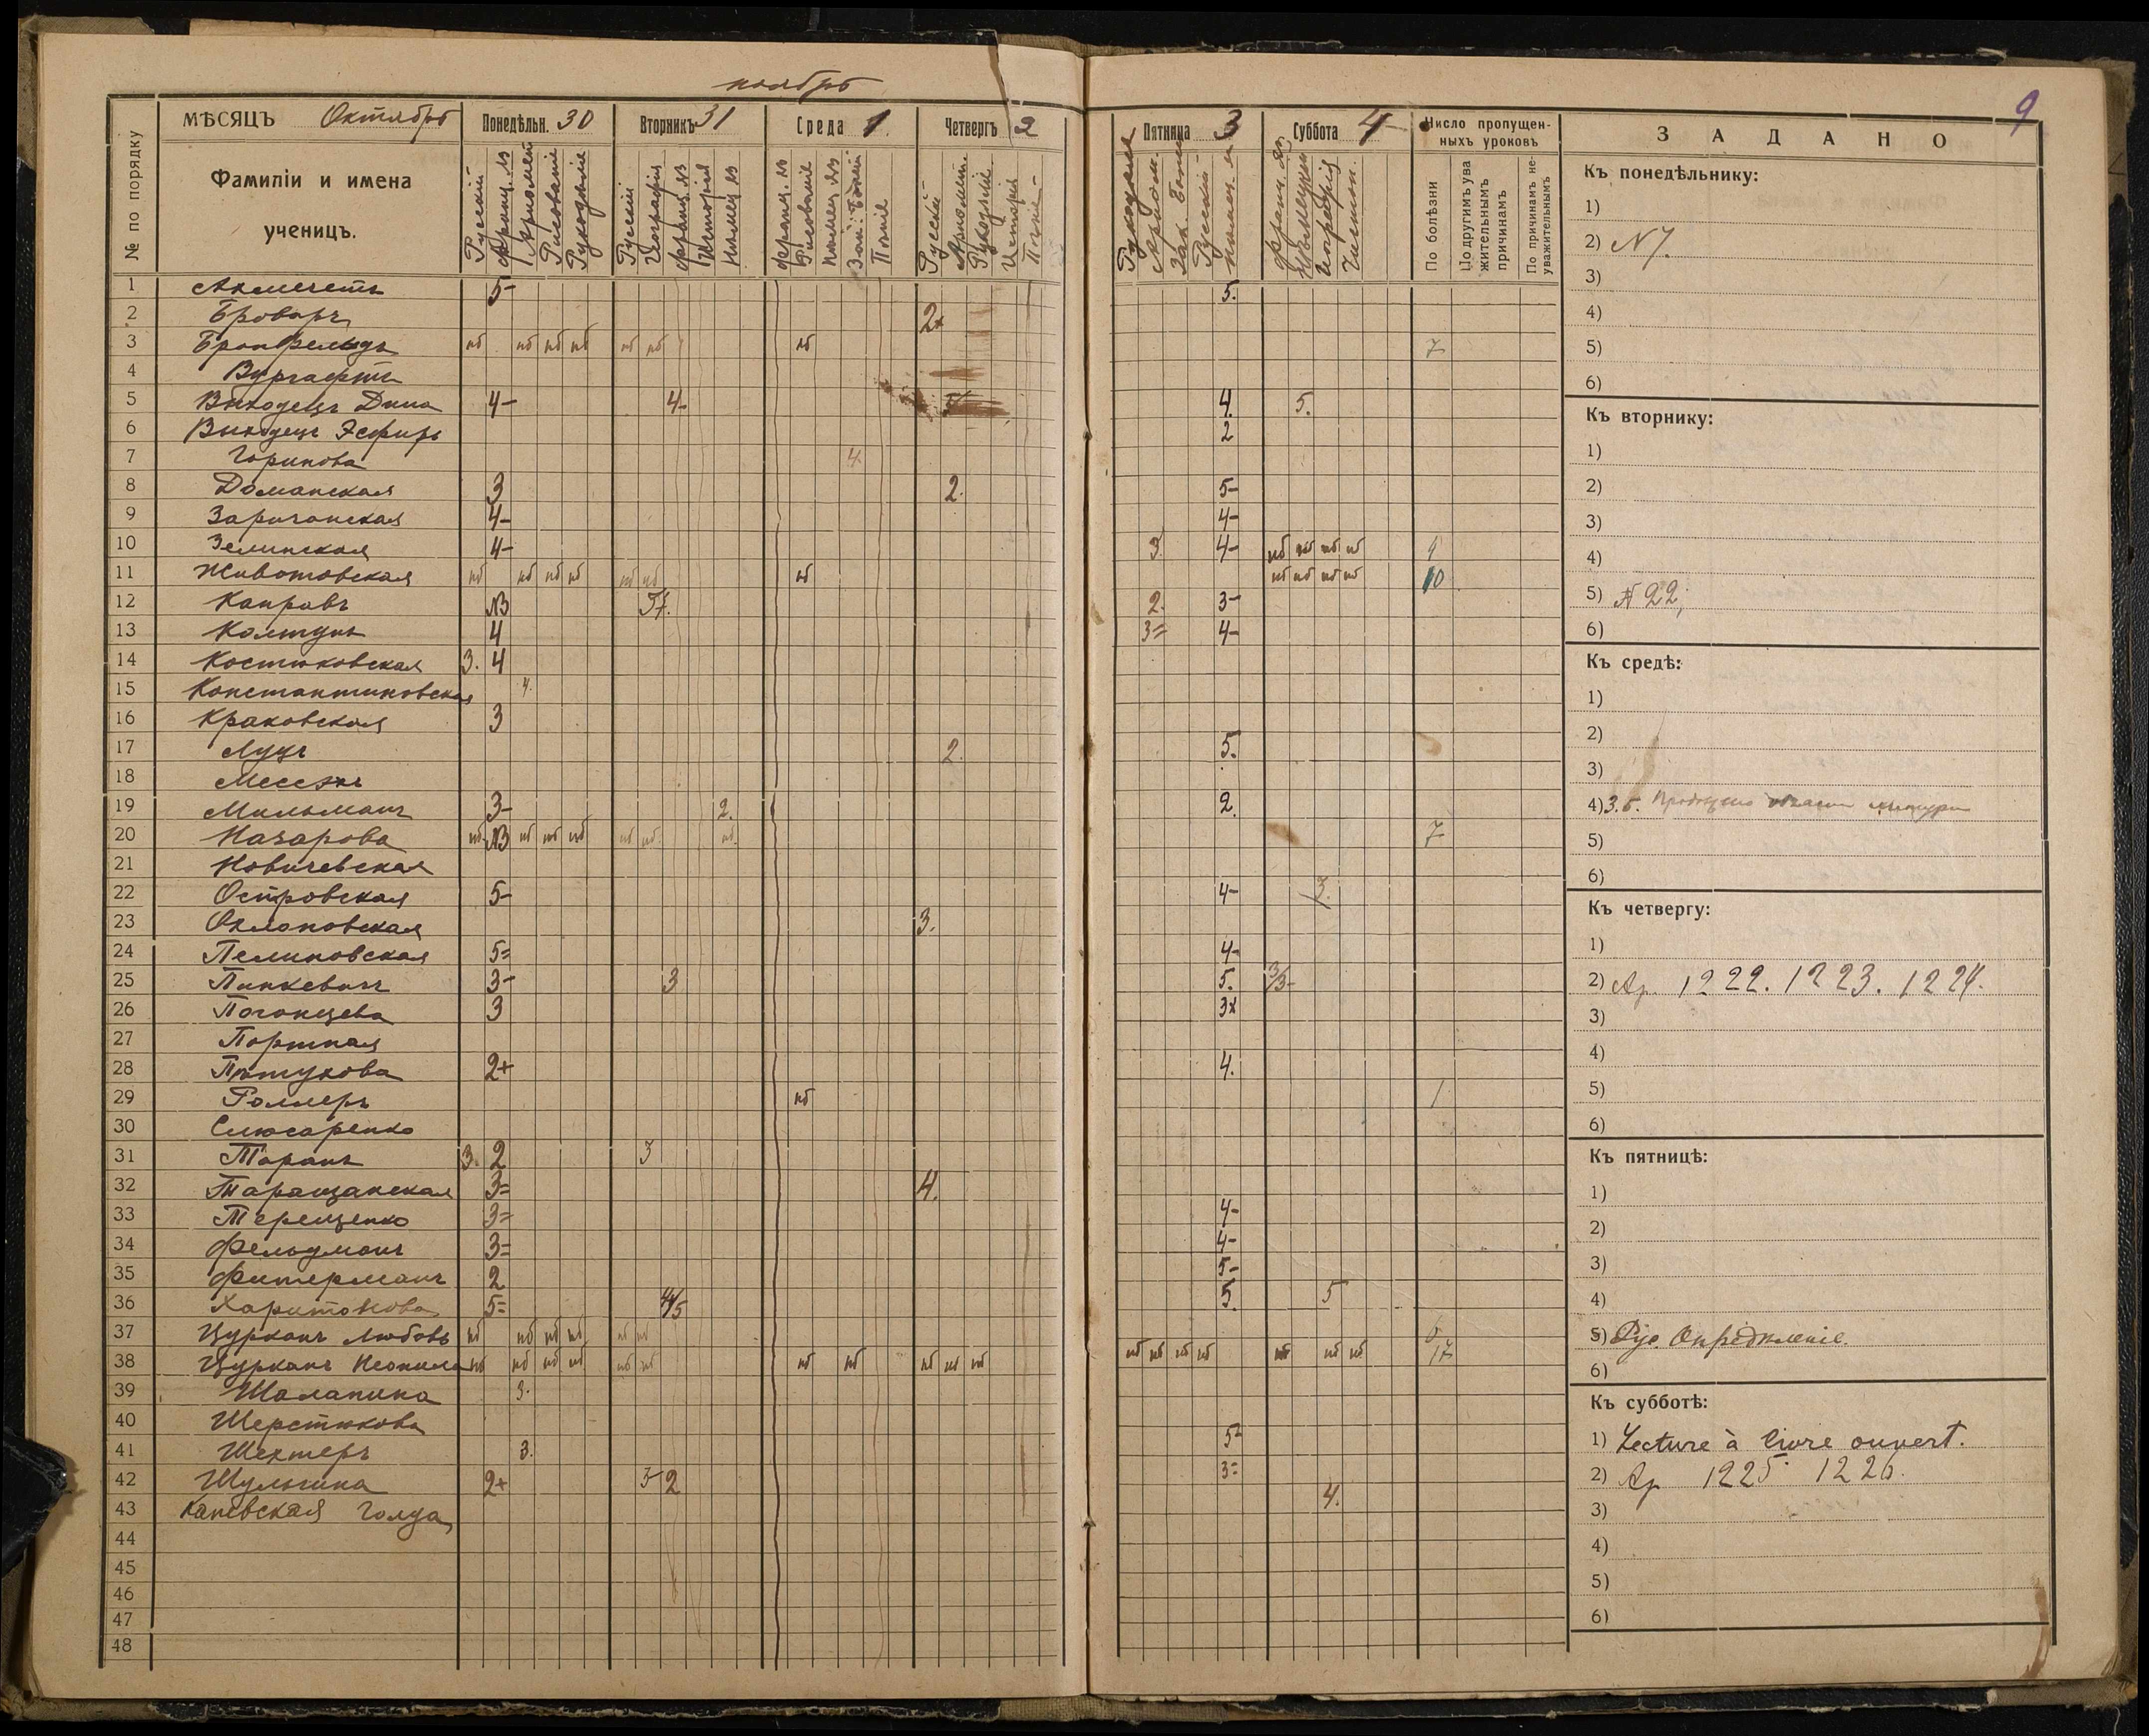 ноябрь
9
МѢСЯЦЪ Октябрь
№ по порядку
Фамиліи и имена
ученицъ.
Понедѣльн. 30
Вторникъ 31
Среда 1.
Четвергъ 2
Пятница 3
Суббота 4
Число пропущен-
ныхъ уроковъ
По болѣзни
По другимъ ува
жительнымъ
причинамъ
По причинамъ не-
уважительнымъ
Русскій
Франц. яз
Рисованіе
Рукодѣліе
Русскій
Географія
Франц. яз
Исторія
Нѣмец. яз
Франц. яз
Рисованіе
Нѣмец. яз
Пѣніе
Русскій
Арифмет.
Рукодѣліе
Исторія
Пѣніе
1 Акмечетъ 5- 5.
2 Броваръ 2+
3 Бронфельдъ нб нб нб нб нб нб нб 7
4 Вургафтъ
5 Выходецъ Дина 4- 4- 4. 5.
6 Выходецъ Эсфирь 2
7 Горикова 4
8 Доманская 3 2. 5-
9 Заричанская 4- 4-
10 Зелинская 4- 3. 4- нб нб нб нб 4
11 Животовская нб нб нб нб нб нб нб нб нб нб нб 10
12 Капровъ 2. 3-
13 Колтунъ 4 3= 4-
14 Костиковская 3. 4
15 Константиновская 4.
16 Краковская 3
17 Луцъ 2. 5.
18 Мессэкъ
19 Мильманъ 3- 2. 2.
20 Назарова нб №3 нб нб нб нб нб нб 7
21 Новичевская
22 Островская 5- 4- 3.
23 Охлоповская 3.
24 Пелиновская 5= 4-
25 Пинкевичъ 3- 3 5. 3/3-
26 Погонцева 3 3x
27 Портная
28 Пѣтухова 2+ 4.
29 Роллеръ нб 1
30 Слюсаренко
31 Таранъ 3. 2 3
32 Таращанская 3= 4.
33 Терещенко 3= 4-
34 Фельдманъ 3= 4-
35 Фитерманъ 2 5-
36 Харитонова 5= 4/5 5. 5
37 Цурканъ Любовь нб нб нб нб нб нб 6
38 Цурканъ Неонила нб нб нб нб нб нб нб нб нб нб нб нб нб нб нб нб нб нб 17
39 Шалапина 3.
40 Шерстюкова
41 Шехтеръ 3. 5-
42 Шульгина 2+ 3 2 3=
43 Каневская Голда 4.
44
45
46
47
48
З А Д А Н О
Къ понедѣльнику:
1)
2) № 7.
3)
4)
5)
6)
Къ вторнику:
1)
2)
3)
4)
5) № 22;
6)
Къ средѣ:
1)
2)
3)
4) З.Б.
5)
6)
Къ четвергу:
1)
2) Ар. 1222. 1223. 1224.
3)
4)
5)
6)
Къ пятницѣ:
1)
2)
3)
4)
5) Рус. Опредѣленіе.
6)
Къ субботѣ:
1) Lecture à livre ouvert.
2) Ар 1225 1226.
3)
4)
5)
6)